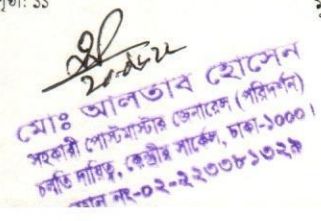 পৃষ্ঠা: ১১
২০-০৬-২২
মোঃ আলতাব হোসেন
সহকারী পোস্টমাস্টার জেনারেল (পরিদর্শন)
চলতি দায়িত্ব, কেন্দ্রীয় সার্কেল, ঢাকা-১০০০।
ফোন নং-০২-২২৩৩৮১৩২৯